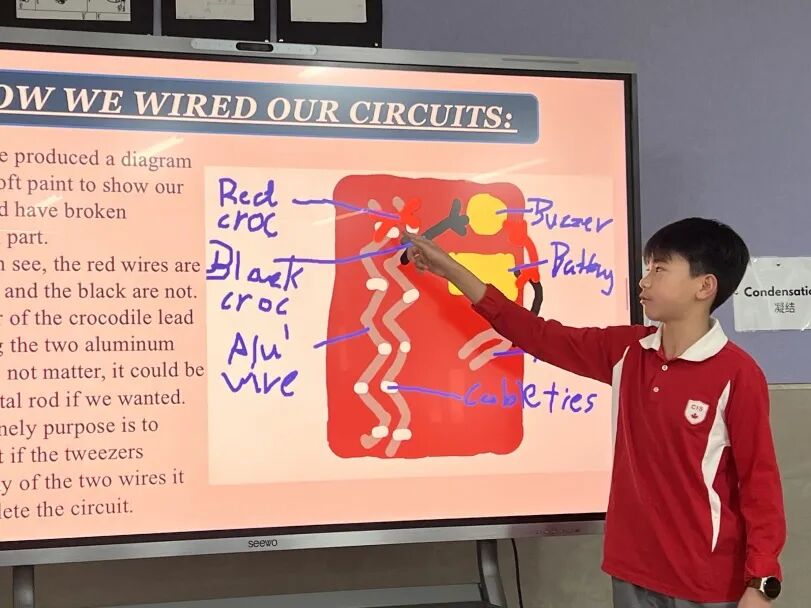 OW WE WIRED OUR CIRCUITS:
e produced a diagram
oft paint to show our
d have broken
part.
see, the red wires are
and the black are not.
of the crocodile lead
g the two aluminum
not matter, it could be
tal rod if we wanted.
nely purpose is to
t if the tweezers
y of the two wires it
lete the circuit.
Red
croc
Black
croc
Alu'
wire
Buzzer
Battery
Cable ties
seewo
CIS
Condensatio
凝结